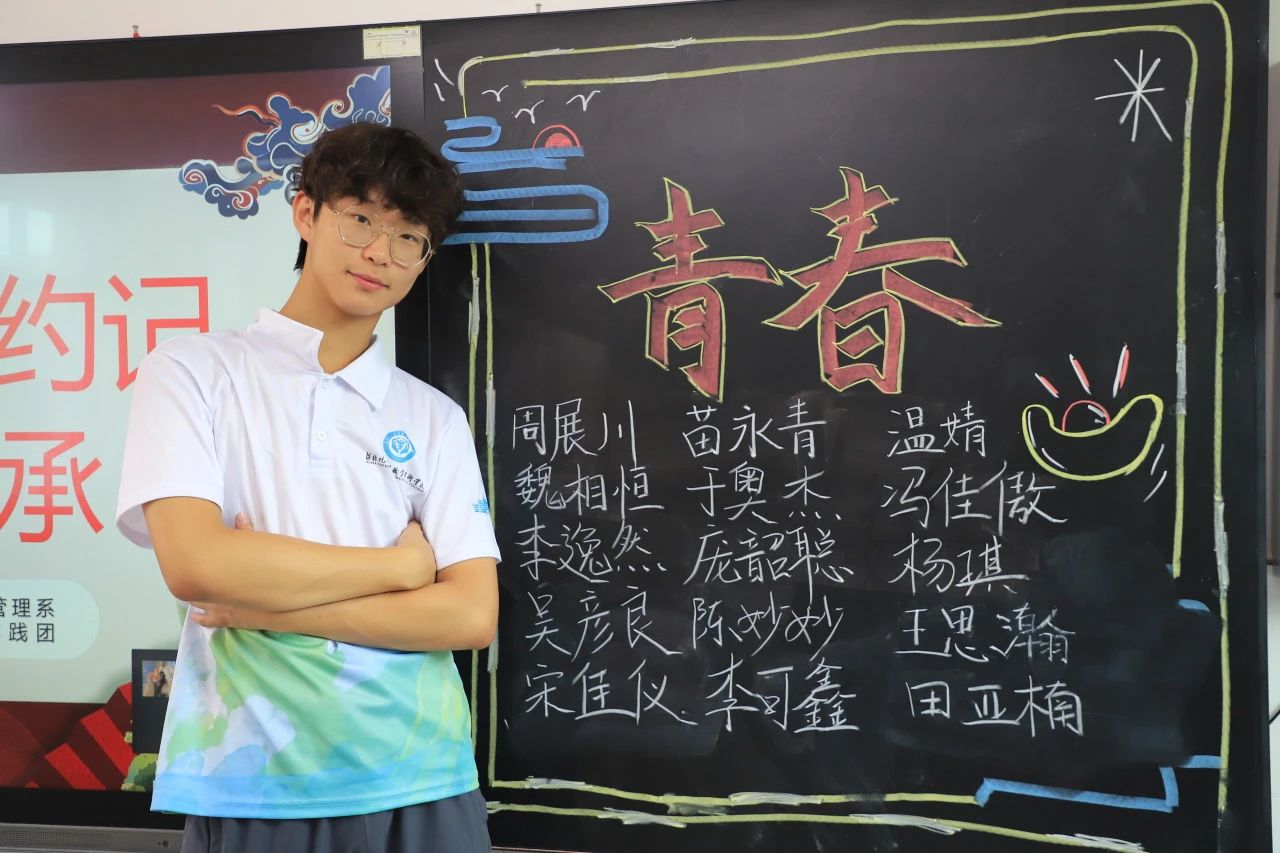 约记
承
管理系
践团
青春
周展川 苗永青 温婧
魏相恒 于奥杰 冯佳傲
李逸然 庞韶聪 杨琪
吴彦良 陈妙妙 王思瀚
宋佳仪 李可鑫 田亚楠